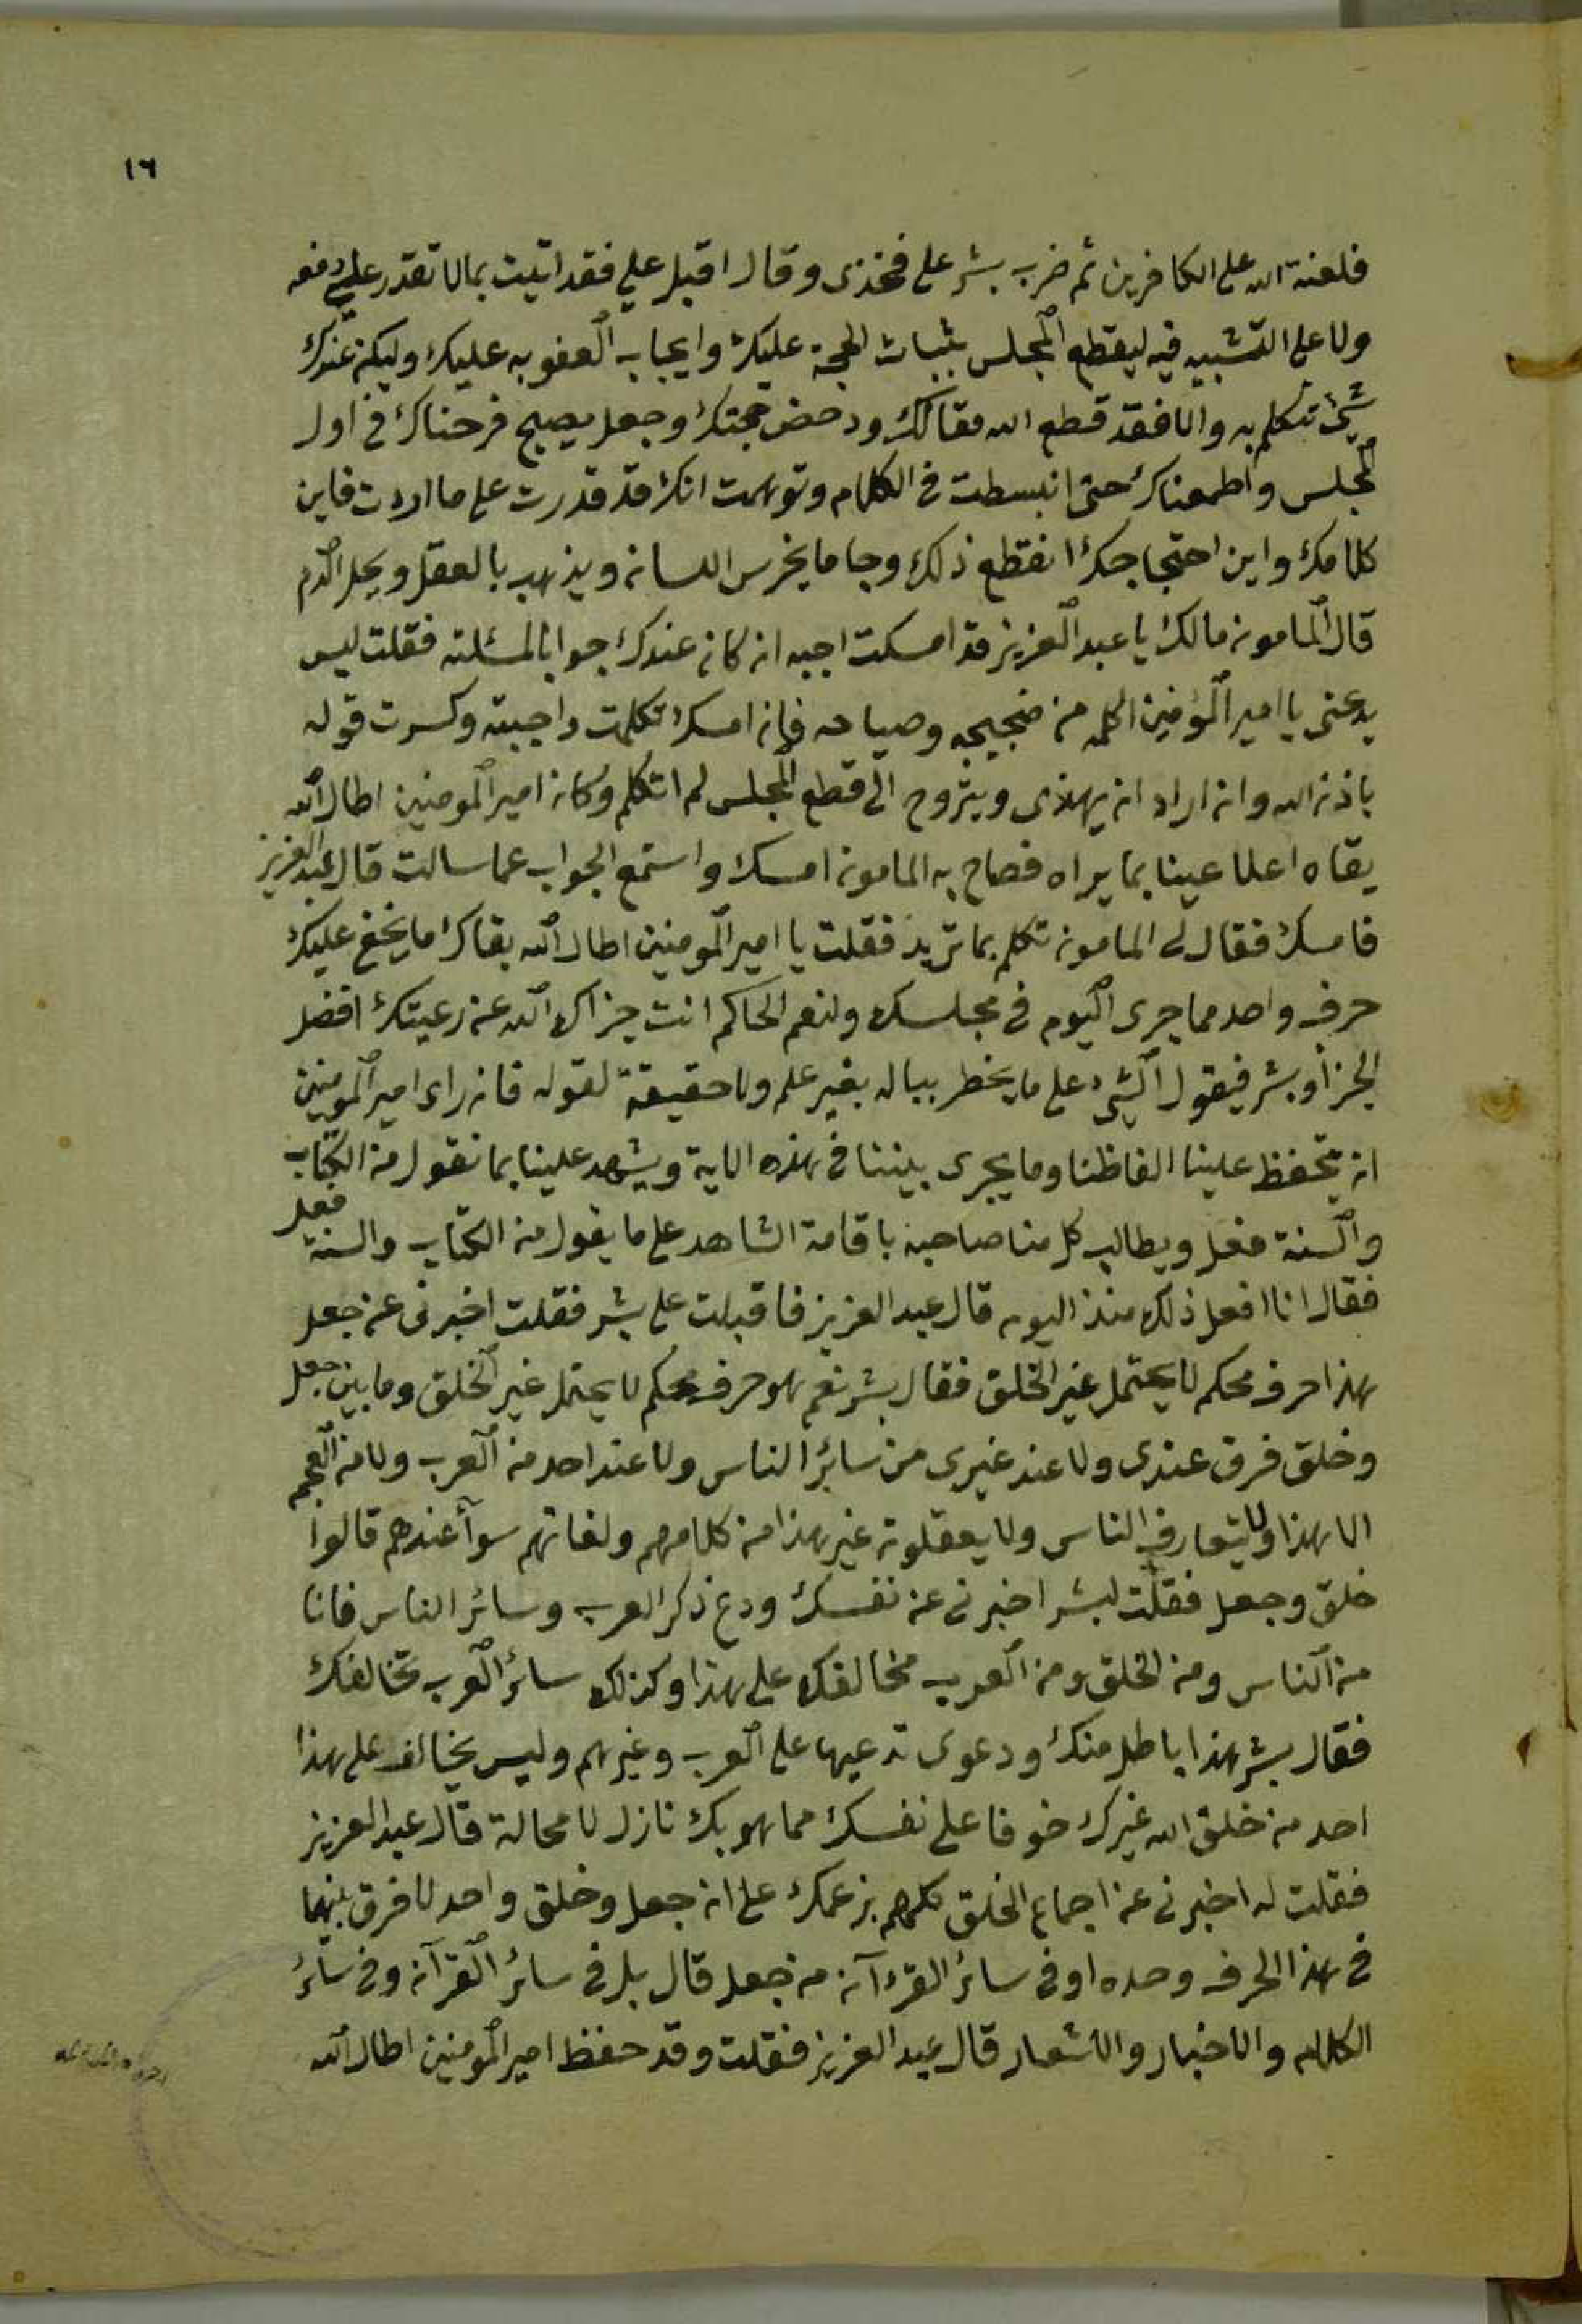 ١٦
فلعنة الله على الكافرين ثم ضرب بشر على فخذى وقال اقبل علي فقد اتيت بمالا تقدر علي دفعه
ولا على التشبيه فيه ليقطع المجلس بثبات الحجة عليك وايجاب العقوبه عليك وليكن عندك
شيئ تتكلم به والا فقد قطع الله مقالك ودحض حجتك وجعل يصيح فرحناك في اول
المجلس واطمعناك حتى انبسطت في الكلام وتوهمت انك قد قدرت على ما اردت فاين
كلامك واين احتجاجك انقطع ذلك وجا ما يخرس اللسان ويذهب بالعقل ويحل الدم
قال المامون مالك يا عبد العزيز قد امسكت اجبه ان كان عندك جوابا لمسئلته فقلت ليس
يدعنى يا امير المؤمنين اكلمه من ضجيجه وصياحه فان امسك تكلمت واجبته وكسرت قوله
باذن الله وان اراد ان يهذى ويتروح الى قطع المجلس لم اتكلم وكان امير المومنين اطال الله
بقاه اعلا عينا بما يراه فصاح به المامون امسك واستمع الجواب عما سالت قال عبد العزيز
فامسك فقال لى المامون تكلم بما تريد فقلت يا امير المومنين اطال الله بقاك ما يخفى عليك
حرف واحد مما جرى اليوم في مجلسك ولنعم الحاكم انت جزاك الله عن رعيتك افضل
الجزأ وبشر فيقول الشيء على ما يخطر بباله بغير علم ولا حقيقة لقوله فان راى امير المومنين
ان يتحفظ علينا الفاظنا وما يجرى بيننا في هذه الاية ويشهد علينا بما نقول من الكتاب
والسنة فعل ويطالب كل منا صاحبه باقامة الشاهد على ما يقول من الكتاب والسنة فعل
فقال انا افعل ذلك منذ اليوم قال عبد العزيز فاقبلت على بشر فقلت اخبرنى عن جعل
هذا حرف محكم لا يحتمل غير الخلق فقال بشر نعم هو حرف محكم لا يحتمل غير الخلق وما بين جعل
وخلق فرق عندى ولا عند غيرى من سائر الناس ولا عند احد من العرب ولا من العجم
الا هذا ولا يتعارف الناس ولا يعقلون غير هذا من كلامهم ولغاتهم سوآ عندهم قالوا
خلق وجعل فقلت لبشر اخبرنى عن نفسك ودع ذكر العرب وسائر الناس فانا
من الناس ومن الخلق ومن العرب مخالفك على هذا وكذلك سائر العرب تخالفك
فقال بشر هذا باطل منك ودعوى تدعيها على العرب وغيرهم وليس يخالف على هذا
احد من خلق الله غيرك خوفا على نفسك مما هو بك نازل لا محالة قال عبد العزيز
فقلت له اخبرنى عن اجماع الخلق كلهم بزعمك على ان جعل وخلق واحد لا فرق بينهما
في هذا الحرف وحده او في سائر القرءآن من جعل قال بل في سائر القرآن وفي سائر
الكلام والاخبار والاشعار قال عبد العزيز فقلت وقد حفظ امير المؤمنين اطال الله